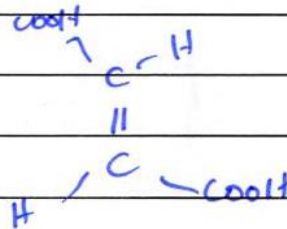 COOH
H
C
||
C
H COOH